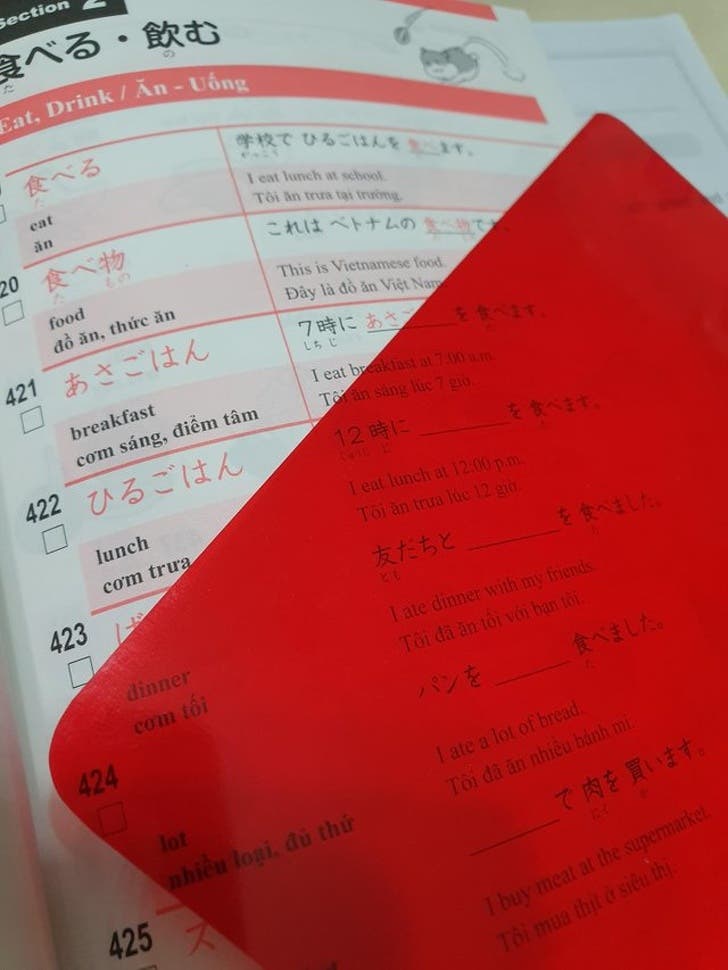 Section 2
食べる・飲む
た の
Eat, Drink / Ăn - Uống
食べる
た
eat
ăn
学校で ひるごはんを 食べます。
がっこう
I eat lunch at school.
Tôi ăn trưa tại trường.
20
食べ物
た もの
food
đồ ăn, thức ăn
これは ベトナムの 食べ物です。
This is Vietnamese food.
Đây là đồ ăn Việt Nam
421
あさごはん
breakfast
cơm sáng, điểm tâm
7時に あさご を 食べます。
しちじ た
I eat breakfast at 7:00 a.m.
Tôi ăn sáng lúc 7 giờ.
422
ひるごはん
lunch
cơm trưa
12時に ______ を 食べます。
じゅうにじ た
I eat lunch at 12:00 p.m.
Tôi ăn trưa lúc 12 giờ.
423
ば
dinner
cơm tối
友だちと ______ を 食べました。
とも た
I ate dinner with my friends.
Tôi đã ăn tối với bạn tôi.
424
lot
nhiều loại, đủ thứ
パンを ______ 食べました。
た
I ate a lot of bread.
Tôi đã ăn nhiều bánh mì
425
ス
______ で 肉を 買います。
にく か
I buy meat at the supermarket.
Tôi mua thịt ở siêu thị.